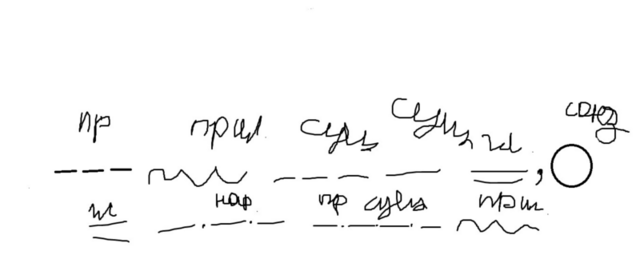 пр прил сущ сущ гл, союз
гл нар пр сущ прил